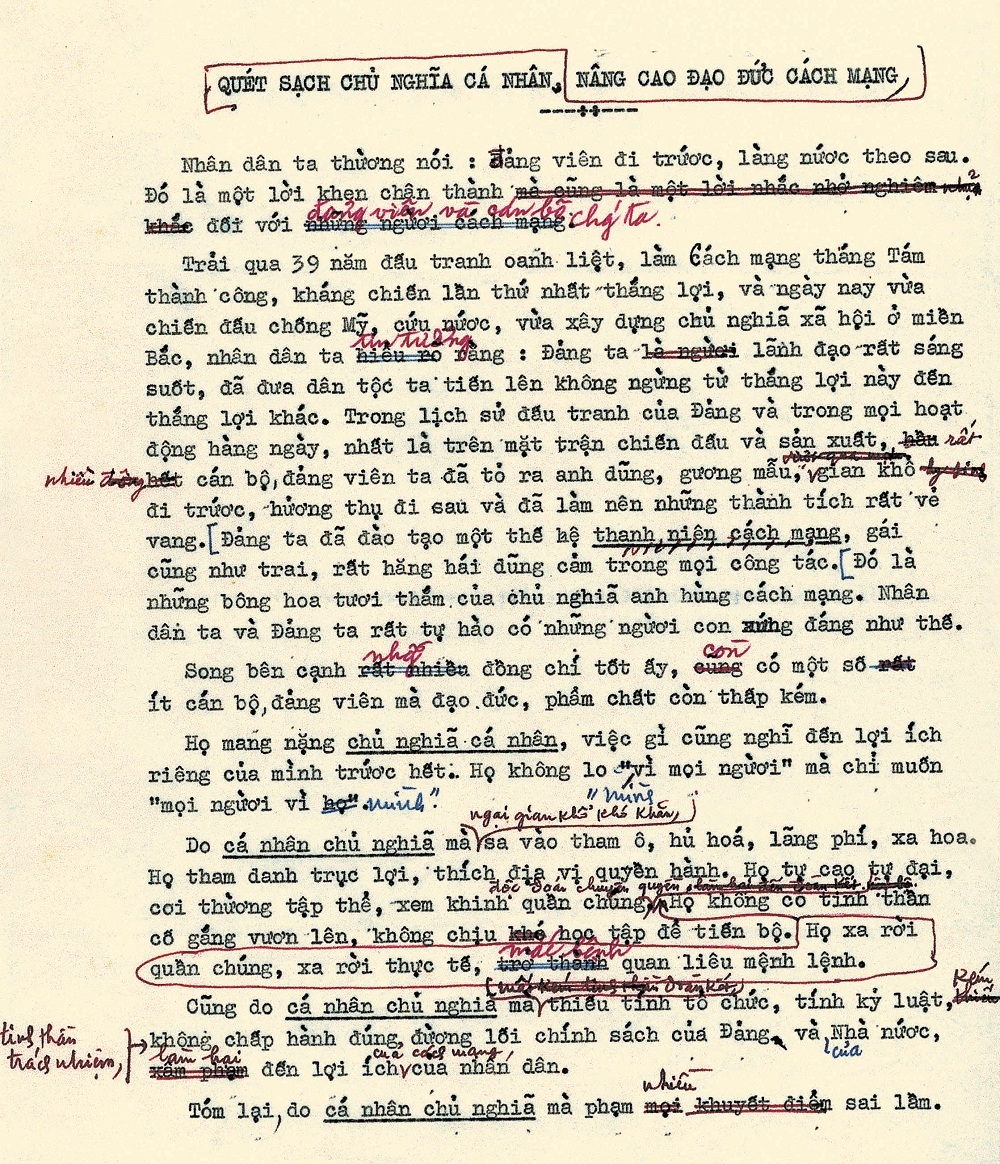 QUÉT SẠCH CHỦ NGHĨA CÁ NHÂN, NÂNG CAO ĐẠO ĐỨC CÁCH MẠNG
Nhân dân ta thường nói : Đảng viên đi trước, làng nước theo sau.
Đó là một lời khen chân thành mà cũng là một lời nhắc nhở nghiêm
đảng viên và cán bộ chúng ta.
khắc đối với những người cách mạng.
Trải qua 39 năm đấu tranh oanh liệt, làm Cách mạng thắng Tám
thành công, kháng chiến lần thứ nhất thắng lợi, và ngày nay vừa
chiến đấu chống Mỹ, cứu nước, vừa xây dựng chủ nghiã xã hội ở miền
tin tưởng
Bắc, nhân dân ta hiểu rõ rằng : Đảng ta là người lãnh đạo rất sáng
suốt, đã đưa dân tộc ta tiến lên không ngừng từ thắng lợi này đến
thắng lợi khác. Trong lịch sử đấu tranh của Đảng và trong mọi hoạt
động hàng ngày, nhất là trên mặt trận chiến đấu và sản xuất, hầu rất
nhiều hết cán bộ, đảng viên ta đã tỏ ra anh dũng, gương mẫu, gian khổ
đi trước, hưởng thụ đi sau và đã làm nên những thành tích rất vẻ
vang. [Đảng ta đã đào tạo một thế hệ thanh niên cách mạng, gái
cũng như trai, rất hăng hái dũng cảm trong mọi công tác. [Đó là
những bông hoa tươi thắm của chủ nghiã anh hùng cách mạng. Nhân
dân ta và Đảng ta rất tự hào có những người con xứng đáng như thế.
những còn
Song bên cạnh rất nhiều đồng chí tốt ấy, cũng có một số rất
ít cán bộ, đảng viên mà đạo đức, phẩm chất còn thấp kém.
Họ mang nặng chủ nghiã cá nhân, việc gì cũng nghĩ đến lợi ích
riêng của mình trước hết. Họ không lo "vì mọi người" mà chỉ muốn
"mình
"mọi người vì họ". mình".
ngại gian khổ khó khăn,
Do cá nhân chủ nghiã mà sa vào tham ô, hủ hoá, lãng phí, xa hoa.
Họ tham danh trục lợi, thích địa vị quyền hành. Họ tự cao tự đại,
độc đoán chuyên quyền,
coi thường tập thể, xem khinh quần chúng. Họ không có tinh thần
cố gắng vươn lên, không chịu khó học tập để tiến bộ. Họ xa rời
mắc bệnh
quần chúng, xa rời thực tế, trở thành quan liêu mệnh lệnh.
Cũng do cá nhân chủ nghiã mà thiếu tính tổ chức, tính kỷ luật, kém
tinh thần
trách nhiệm, không chấp hành đúng đường lối chính sách của Đảng, và Nhà nước,
của
làm hại của cách mạng,
xâm phạm đến lợi ích của nhân dân.
nhiều
Tóm lại, do cá nhân chủ nghiã mà phạm mọi khuyết điểm sai lầm.